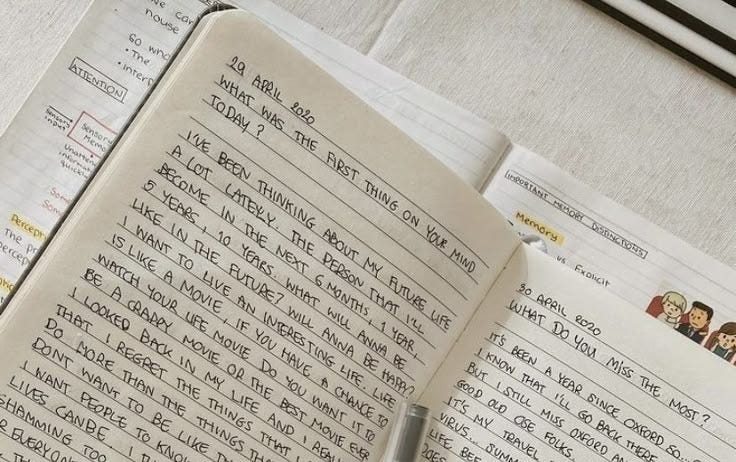 we can
house
So who
• The
• interp
ATTENTION
Sensory
input
Sensory
Memo
Unatten
information
quickly
Som
Som
Percept
The pr
percep
29 APRIL 2020
WHAT WAS THE FIRST THING ON YOUR MIND
TODAY?
I'VE BEEN THINKING ABOUT MY FUTURE LIFE
A LOT LATELY. THE PERSON THAT I'LL
BECOME IN THE NEXT 6 MONTHS, 1 YEAR,
5 YEARS, 10 YEARS. WHAT WILL ANNA BE
LIKE IN THE FUTURE? WILL ANNA BE HAPPY?
I WANT TO LIVE AN INTERESTING LIFE. LIFE
IS LIKE A MOVIE, IF YOU HAVE A CHANCE TO
WATCH YOUR LIFE MOVIE DO YOU WANT IT TO
BE A CRAPPY MOVIE OR THE BEST MOVIE EVER
I LOOKED BACK IN MY LIFE AND I REALI
THAT I REGRET THE THINGS THAT I
DO MORE THAN THE THINGS THAT
DON'T WANT TO BE LIKE THI
I WANT PEOPLE TO KNOW
LIVES CAN BE. I TON
SHAMMING TOO
R EVERYON
IMPORTANT MEMORY DISTINCTIONS
Memory
vs Explicit
30 APRIL 2020
WHAT DO YOU MISS THE MOST?
IT'S BEEN A YEAR SINCE OXFORD SO...
I KNOW THAT I'LL GO BACK THERE
BUT I STILL MISS OXFORD AN
GOOD OLD OSE FOLKS.
IT'S MY TRAVEL
VIRUS... SUMM
LIFE BEE
DOES